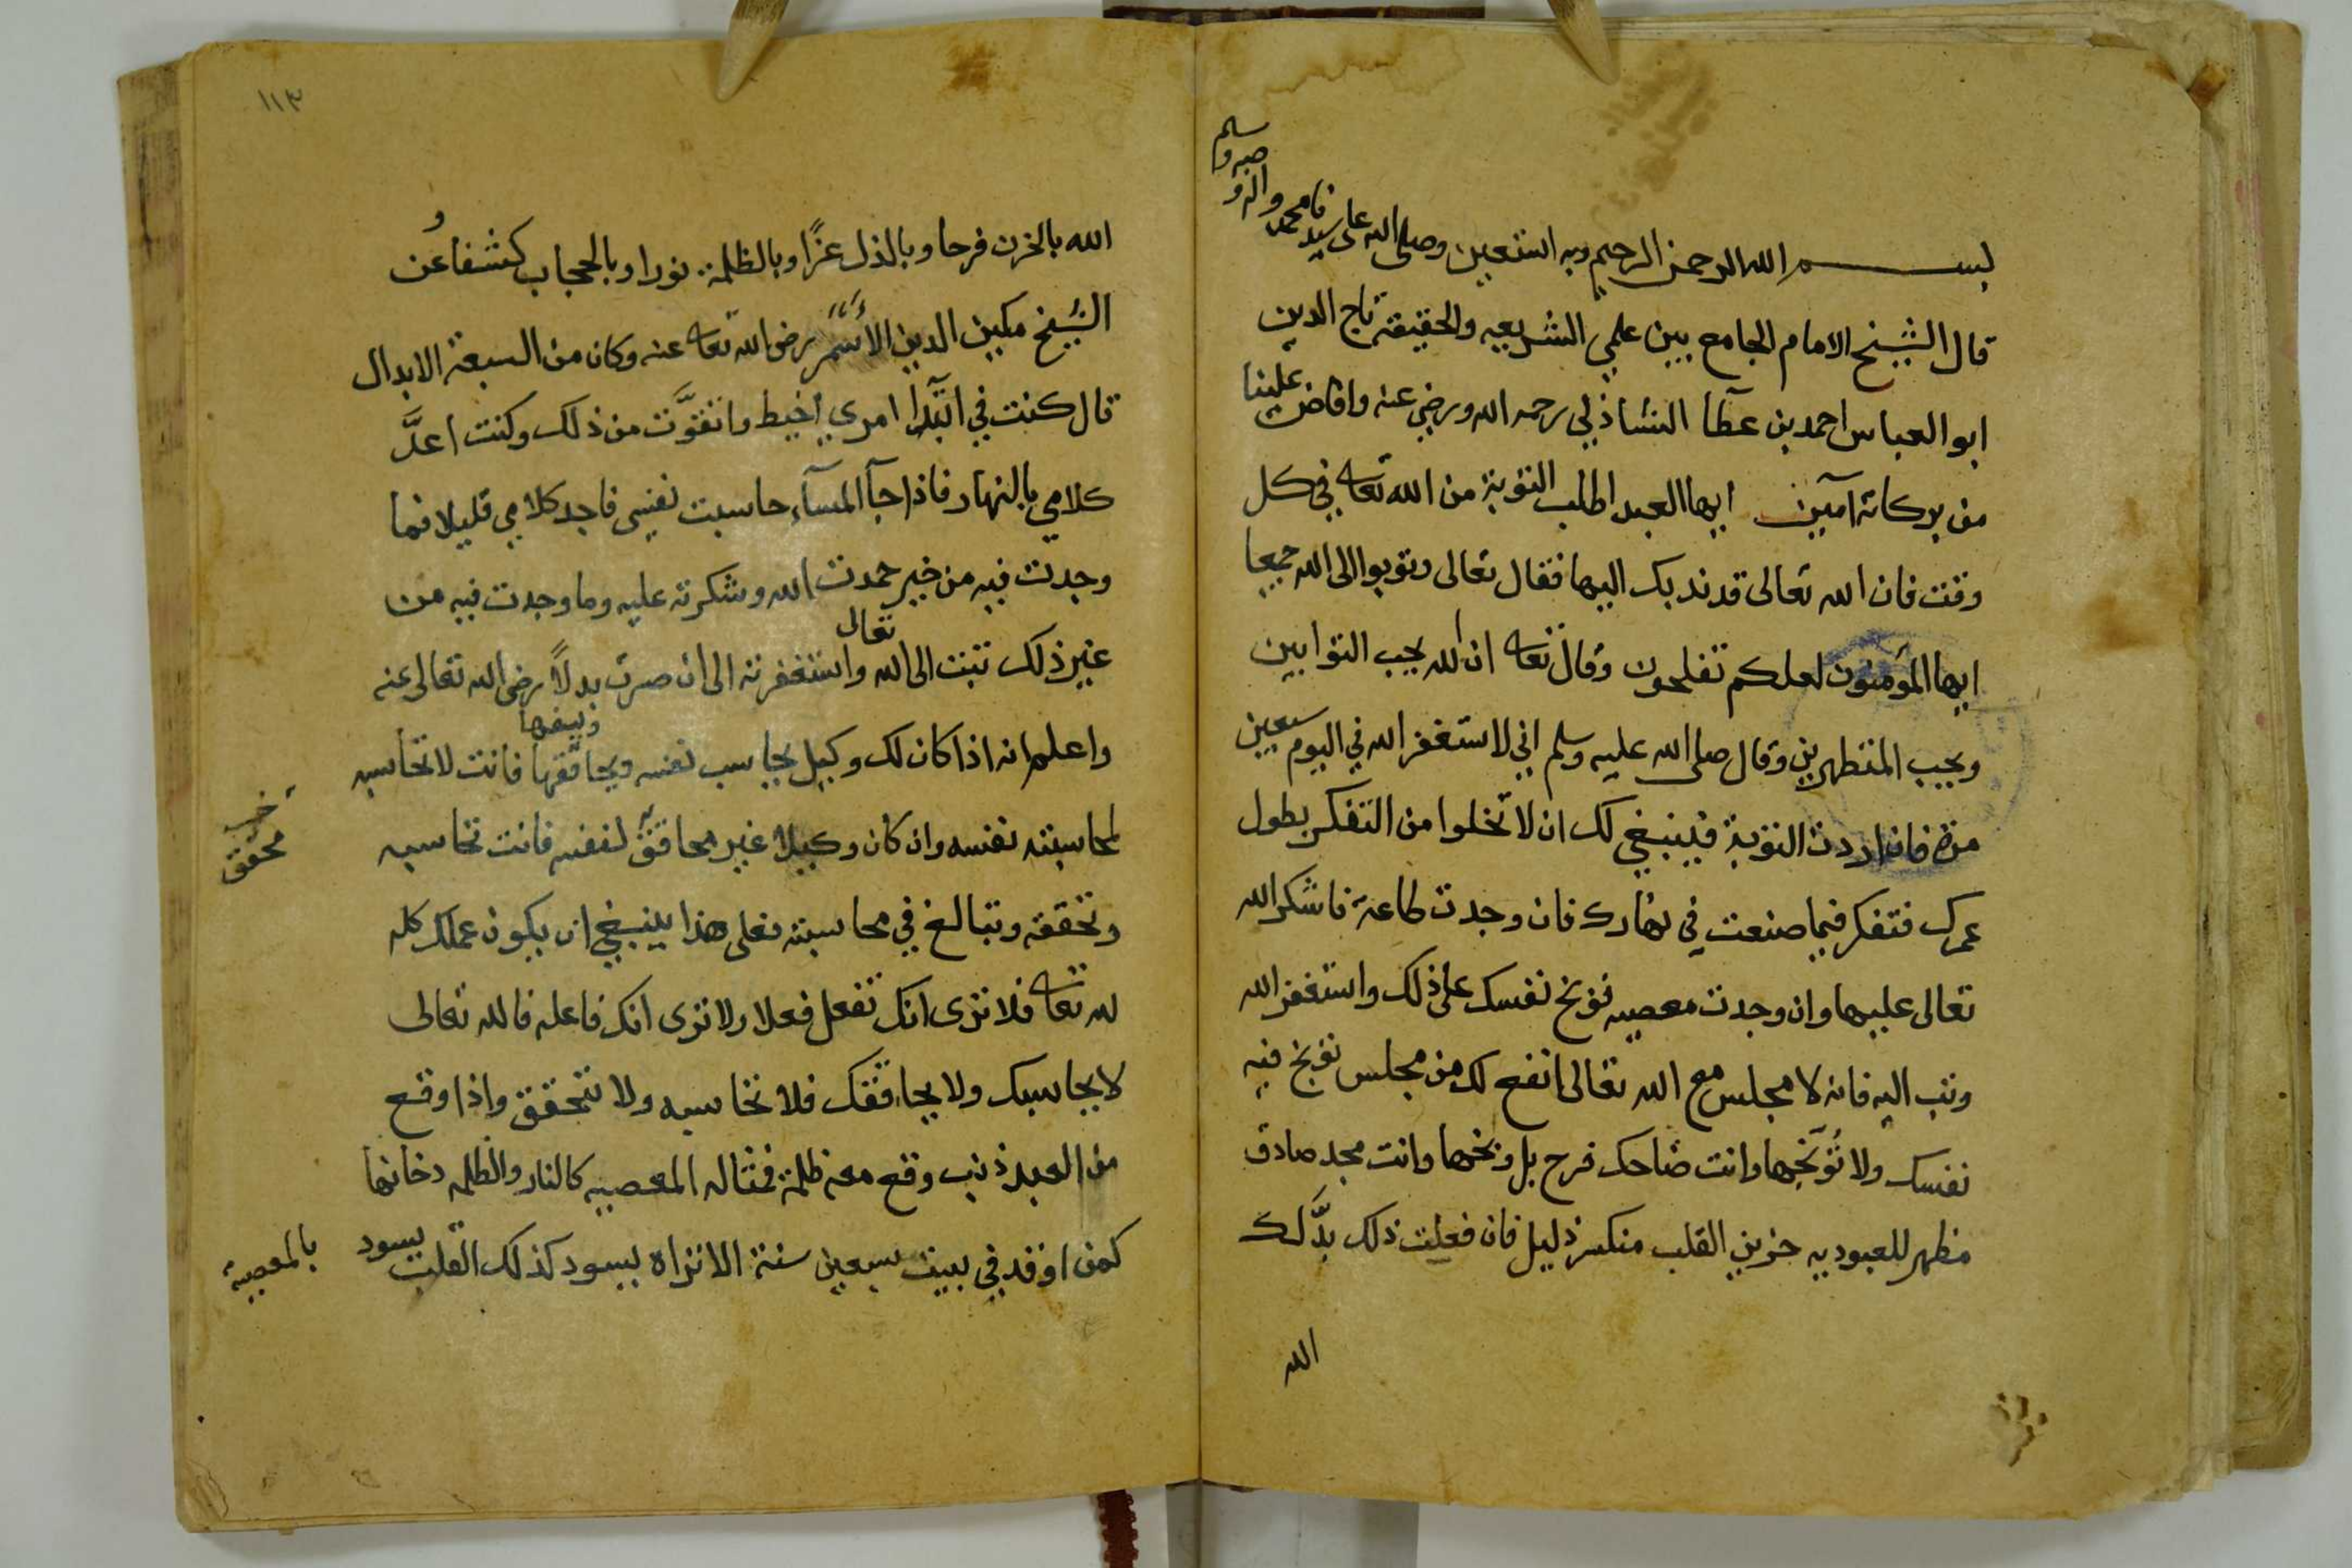 بسم الله الرحمن الرحيم وبه استعين وصلى الله على سيدنا محمد واله وصحبه وسلم
قال الشيخ الامام الجامع بين علمي الشريعه والحقيقة تاج الدين
ابو العباس احمد بن عطآ الشاذلي رحمه الله ورضي عنه وافاض علينا
من بركاته آمين ايها العبد اطلب التوبة من الله تعا في كل
وقت فان الله تعالى قد ندبك اليها فقال تعالى وتوبوا الى الله جميعا
ايها المؤمنون لعلكم تفلحون وقال تعا ان الله يحب التوابين
ويحب المتطهرين وقال صلى الله عليه وسلم اني لاستغفر الله في اليوم سبعين
مرة فان اردت التوبة فينبغي لك ان لا تخلوا من التفكر بطول
عمرك فتفكر فيما صنعت في نهارك فان وجدت طاعة فاشكر الله
تعالى عليها وان وجدت معصيه فوبخ نفسك على ذلك واستغفر الله
وتب اليه فانه لا مجلس مع الله تعالى انفع لك من مجلس توبخ فيه
نفسك ولا تُوَبّخها وانت ضاحك فرح بل وبخها وانت مجد صادق
مظهر للعبوديه حزين القلب منكسر ذليل فان فعلت ذلك بدَّلك
الله
١١٣
الله بالحزن فرحا وبالذل عزًا وبالظلمة نورا وبالحجاب كشفا وعن
الشيخ مكين الدين الأسمر رضي الله تعا عنه وكان من السبعة الابدال
قال كنت في ابتدا امري اخيط واتقوَّت من ذلك وكنت اعدَّ
كلامي بالنهار فاذا جآ المسآء حاسبت نفسي فاجد كلامي قليلا فما
وجدت فيه من خير حمدت الله وشكرته عليه وما وجدت فيه من
غير ذلك تبت الى الله تعالى واستغفرته الى ان صرت بدلاً رضي الله تعالى عنه
واعلم انه اذا كان لك وكيل يحاسب نفسه ويحاققها فانت لا تحاسبه
لمحاسبته نفسه وان كان وكيلا غير محاقق لنفسه فانت تحاسبه
محقق
وتحققه وتبالغ في محاسبته فعلى هذا ينبغي ان يكون عملك كله
لله تعا فلا ترى انك تفعل فعلا ولا ترى انك فاعله فالله تعالى
لا يحاسبك ولا يحاققك فلا تحاسبه ولا تتحقق واذا وقع
من العبد ذنب وقع معه ظلمة فمثاله المعصيه كالنار والظلمه دخانها
كمن اوقد في بيت سبعين سنة الا تراه يسود كذلك القلب يسود
بالمعصية